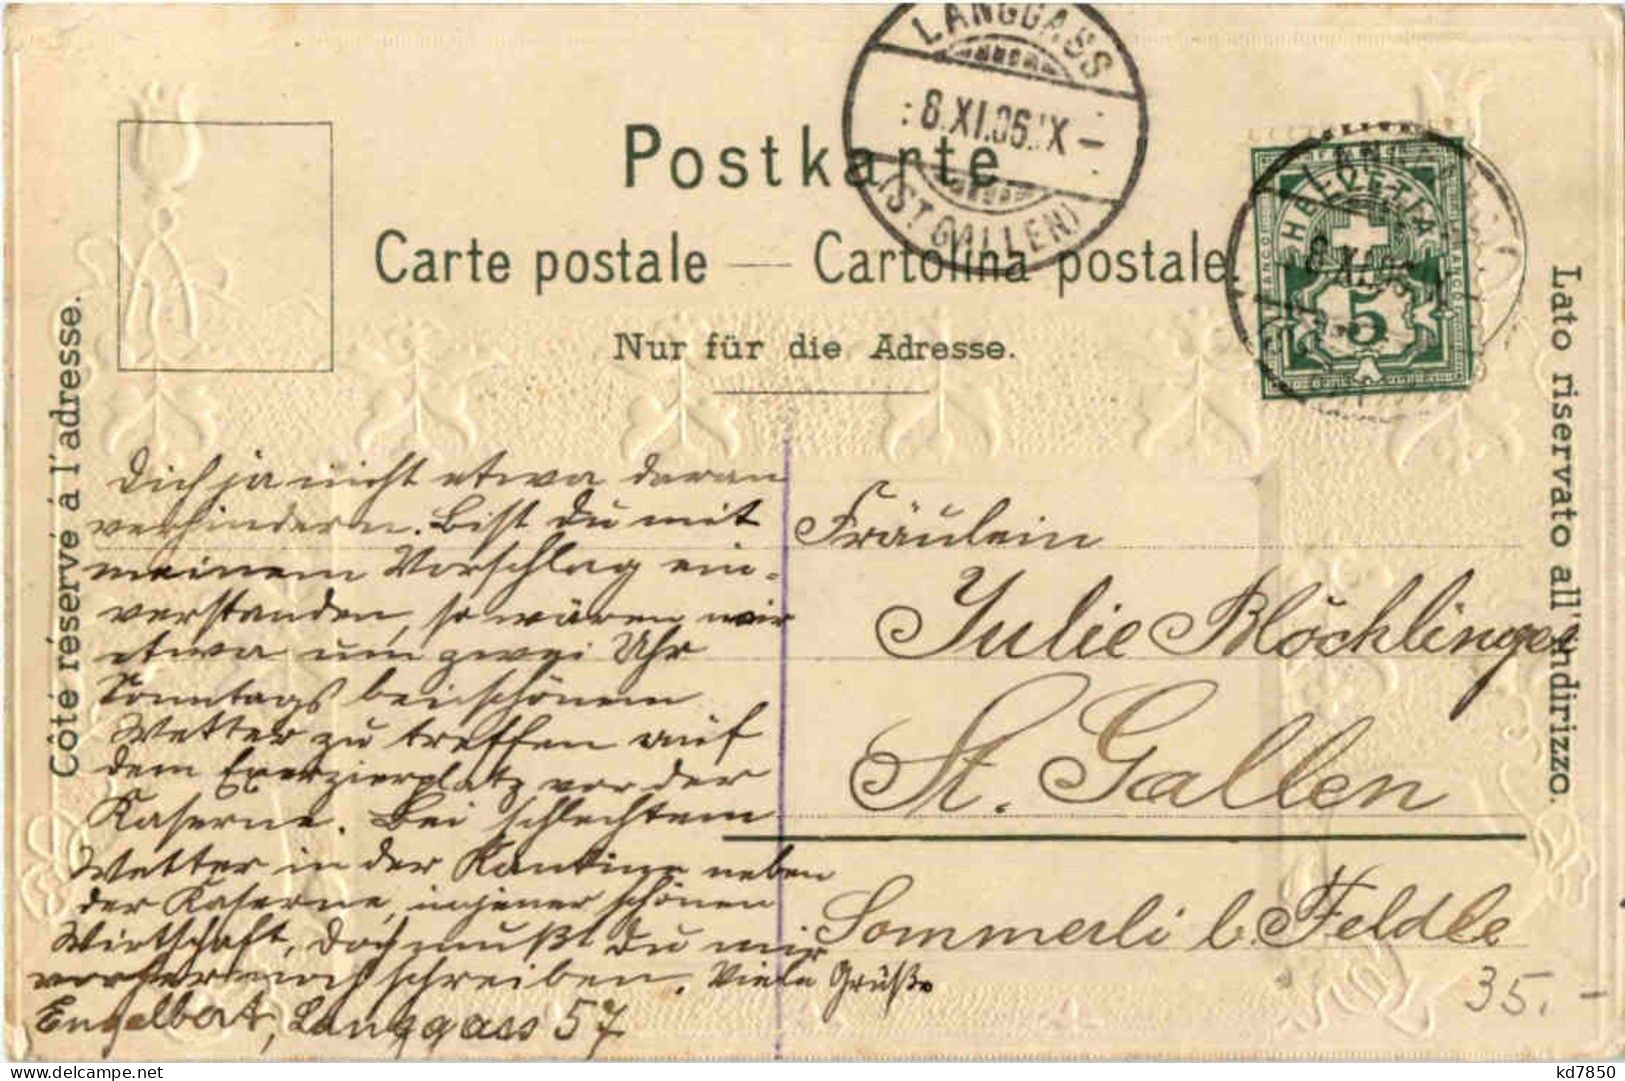 LANGGASS
8.XI.06.IX
(ST. GALLEN)
Postkarte
Carte postale — Cartolina postale.
Nur für die Adresse.
Côté réservé à l'adresse.
Lato riservato all'indirizzo.
HELVETIA
FRANCO
5
Dich ja nicht etwa daran
verhindern. Bist Du mit
meinem Vorschlag ein-
verstanden, so wären wir
etwa um zwei Uhr
Sonntags bei schönem
Wetter zu treffen auf
dem Exerzierplatz vor der
Kaserne. Bei schlechtem
Wetter in der Kantine neben
der Kaserne, in jener schönen
Wirtschaft, doch mußt Du mir
vorher noch schreiben. Viele Grüße
Engelbert, Langgass 57
Fräulein
Julie Blöchlinger
St. Gallen
Sommerli b. Feldle
35.-
kd7850